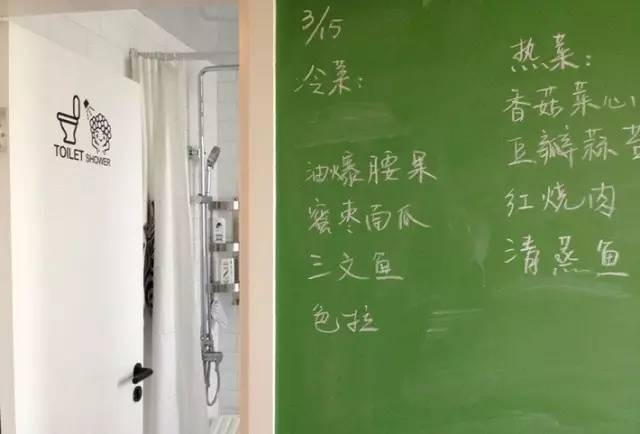 TOILET SHOWER
3/15
冷菜:
油爆腰果
蜜枣南瓜
三文鱼
色拉
热菜:
香菇菜心
豆瓣蒜苔
红烧肉
清蒸鱼